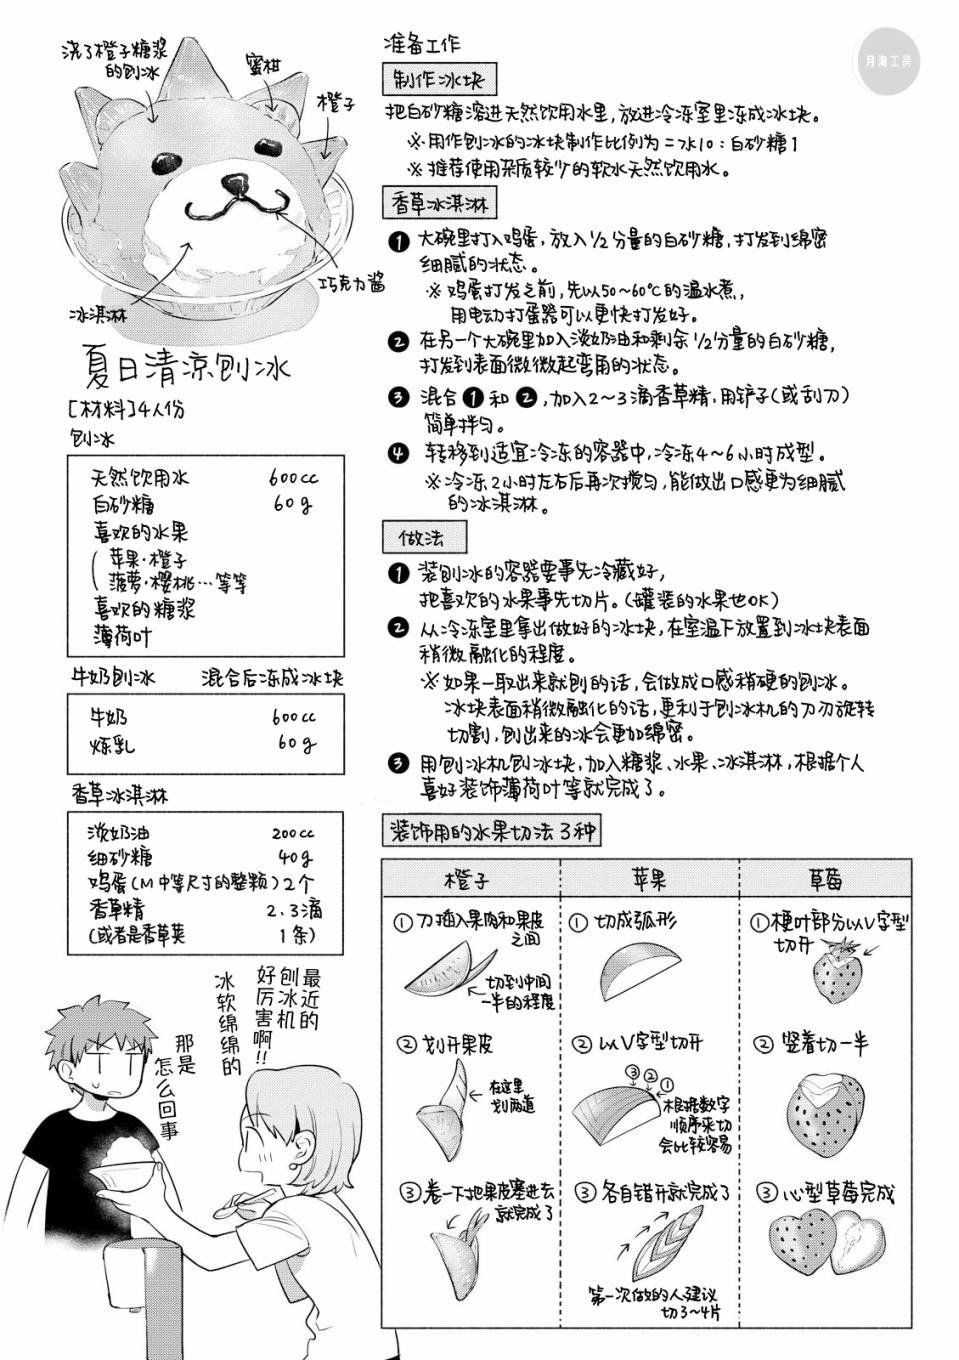 浇了橙子糖浆
的刨冰
蜜柑
橙子
巧克力酱
冰淇淋
夏日清凉刨冰
[材料]4人份
刨冰
天然饮用水 600cc
白砂糖 60g
喜欢的水果
(苹果·橙子
菠萝·樱桃…等等
喜欢的糖浆
薄荷叶
牛奶刨冰 混合后冻成冰块
牛奶 600cc
炼乳 60g
香草冰淇淋
淡奶油 200cc
细砂糖 40g
鸡蛋(M中等尺寸的整颗)2个
香草精 2.3滴
(或者是香草荚 1条)
最近的
刨冰机
好厉害啊!!
冰软绵绵的
那是
怎么回事
月海工房
准备工作
制作冰块
把白砂糖溶进天然饮用水里,放进冷冻室里冻成冰块。
※用作刨冰的冰块制作比例为=水10:白砂糖1
※推荐使用杂质较少的软水天然饮用水。
香草冰淇淋
❶ 大碗里打入鸡蛋,放入1/2分量的白砂糖,打发到绵密
细腻的状态。
※鸡蛋打发之前,先以50~60℃的温水煮,
用电动打蛋器可以更快打发好。
❷ 在另一个大碗里加入淡奶油和剩余1/2分量的白砂糖,
打发到表面微微起弯角的状态。
❸ 混合❶和❷,加入2~3滴香草精,用铲子(或刮刀)
简单拌匀。
❹ 转移到适宜冷冻的容器中,冷冻4~6小时成型。
※冷冻2小时左右后再次搅匀,能做出口感更为细腻
的冰淇淋。
做法
❶ 装刨冰的容器要事先冷藏好,
把喜欢的水果事先切片。(罐装的水果也OK)
❷ 从冷冻室里拿出做好的冰块,在室温下放置到冰块表面
稍微融化的程度。
※如果一取出来就刨的话,会做成口感稍硬的刨冰。
冰块表面稍微融化的话,更利于刨冰机的刀刃旋转
切割,刨出来的冰会更加绵密。
❸ 用刨冰机刨冰块,加入糖浆、水果、冰淇淋,根据个人
喜好装饰薄荷叶等就完成了。
装饰用的水果切法3种
橙子
①刀插入果肉和果皮
之间
切到中间
一半的程度
②划开果皮
在这里
划两道
③卷一下把果皮塞进去
就完成了
苹果
①切成弧形
②以V字型切开
③②①
根据数字
顺序来切
会比较容易
③各自错开就完成了
第一次做的人建议
切3~4片
草莓
①梗叶部分以V字型
切开
②竖着切一半
③心型草莓完成